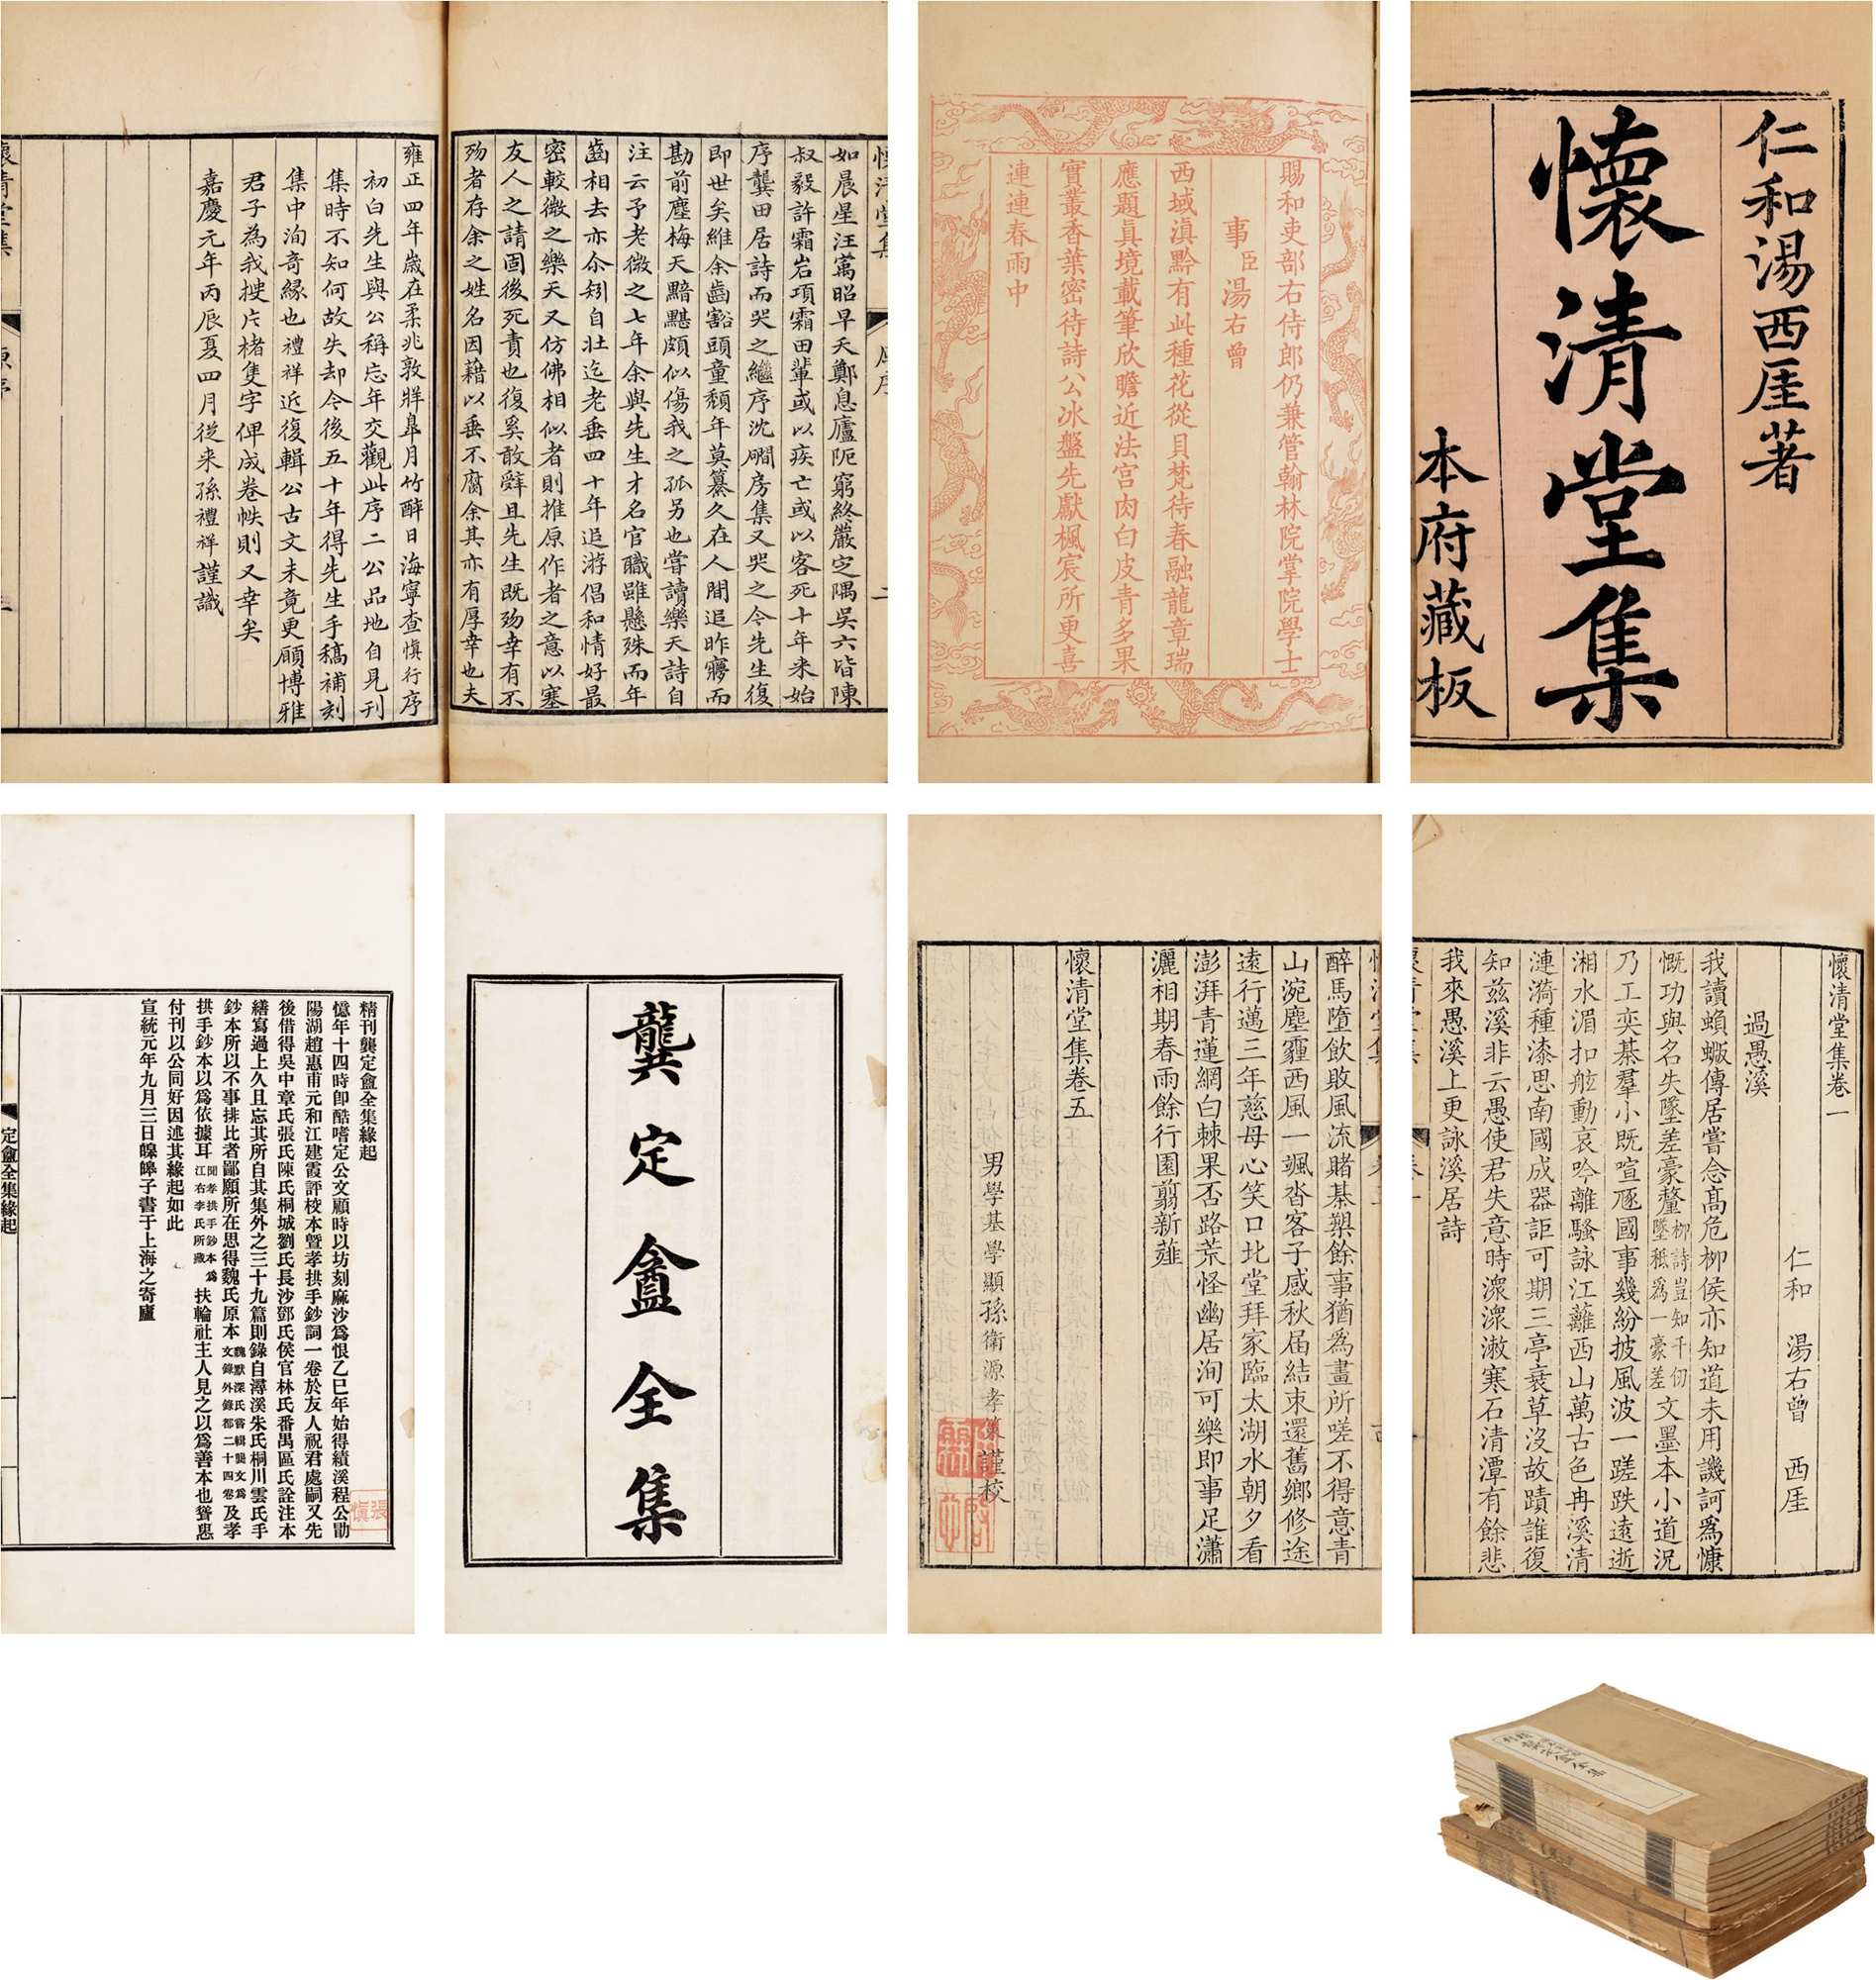 仁和湯西厓著
懷清堂集
本府藏板
賜和吏部右侍郎仍兼管翰林院掌院學士
事臣湯右曾
西域滇黔有此種花從貝梵待春融龍章瑞
應題眞境載筆欣瞻近法宫肉白皮青多果
實叢香葉密待詩公冰盤先獻楓宸所更喜
連連春雨中
如晨星汪寓昭早夭鄭息廬阨窮終嚴定隅吳六皆陳
叔毅許霜岩項霜田輩或以疾亡或以客死十年来始
序龔田居詩而哭之繼序沈磵房集又哭之今先生復
即世矣維余齒豁頭童頹年莫纂久在人間追昨夢而
勘前塵梅天黯黮頗似傷我之孤另也嘗讀樂天詩自
注云予老微之七年余與先生才名官職雖懸殊而年
齒相去亦尒矧自壯迄老垂四十年追游倡和情好最
密較微之樂天又仿佛相似者則推原作者之意以塞
友人之請固後死責也復奚敢辤且先生既歿幸有不
歿者存余之姓名因藉以垂不腐余其亦有厚幸也夫
雍正四年歲在柔兆敦牂皐月竹醉日海寧查慎行序
初白先生與公稱忘年交觀此序二公品地自見刊
集時不知何故失却今後五十年得先生手稿補刻
集中洵奇緣也禮祥近復輯公古文未竟更願博雅
君子為我搜片楮隻字俾成卷帙則又幸矣
嘉慶元年丙辰夏四月從来孫禮祥謹識
懷清堂集卷一
仁和 湯右曾 西厓
過愚溪
我讀蝜蝂傳居嘗念高危柳侯亦知道未用譏訶爲慷
慨功與名失墜差豪釐柳詩豈知千仞墜秖爲一豪差文墨本小道況
乃工奕棊羣小既喧豗國事幾紛披風波一蹉跌遠逝
湘水湄扣舷動哀吟離騷詠江蘺西山萬古色冉溪清
漣漪種漆思南國成器詎可期三亭衰草沒故蹟誰復
知兹溪非云愚使君失意時潨潨潄寒石清潭有餘悲
我來愚溪上更詠溪居詩
醉馬墮飲敗風流賭棊槊餘事猶爲畫所嗟不得意青
山涴塵霾西風一颯沓客子感秋屆結束還舊鄉修途
遠行邁三年慈母心笑口北堂拜家臨太湖水朝夕看
澎湃青蓮網白棘果否路荒怪幽居洵可樂即事足瀟
灑相期春雨餘行園翦新薤
懷清堂集卷五
男學基學顯孫衛源孝 謹校
龔定盦全集
精刊龔定盦全集緣起
憶年十四時卽酷嗜定公文顧時以坊刻麻沙爲恨乙巳年始得績溪程公勖
陽湖趙惠甫元和江建霞評校本曁孝拱手鈔詞一卷於友人祝君處嗣又先
後借得吳中章氏張氏陳氏桐城劉氏長沙鄧氏侯官林氏番禺區氏詮注本
繕寫過上久且忘其所自其集外之三十九篇則錄自潯溪朱氏桐川雲氏手
鈔本所以不事排比者鄙願所在思得魏氏原本魏默深氏嘗輯龔文爲文錄外錄都二十四卷及孝
拱手鈔本以爲依據耳聞孝拱手鈔本爲江右李氏所藏扶輪社主人見之以爲善本也聳恿
付刊以公同好因述其緣起如此
宣統元年九月三日皞皞子書于上海之寄廬
定盦全集緣起
一